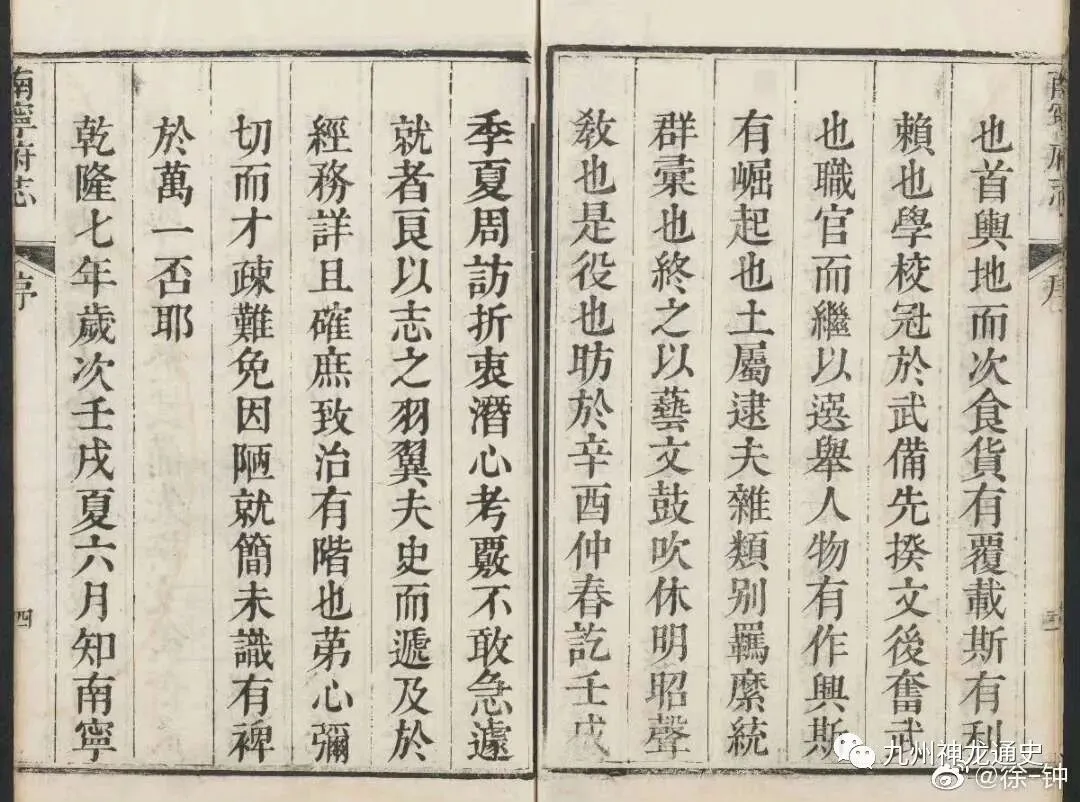 也首輿地而次食貨有覆載斯有利
賴也學校冠於武備先揆文後奮武
也職官而繼以選舉人物有作興斯
有崛起也土屬逮夫雜類别羈縻統
群彙也終之以藝文鼓吹休明昭聲
敎也是役也昉於辛酉仲春訖壬戌
季夏周訪折衷潛心考覈不敢急遽
就者良以志之羽翼夫史而遞及於
經務詳且確庶致治有階也苐心彌
切而才疎難免因陋就簡未識有裨
於萬一否耶
乾隆七年歲次壬戌夏六月知南寧
南寧府志
序
四
九州神龙通史
@徐-钟